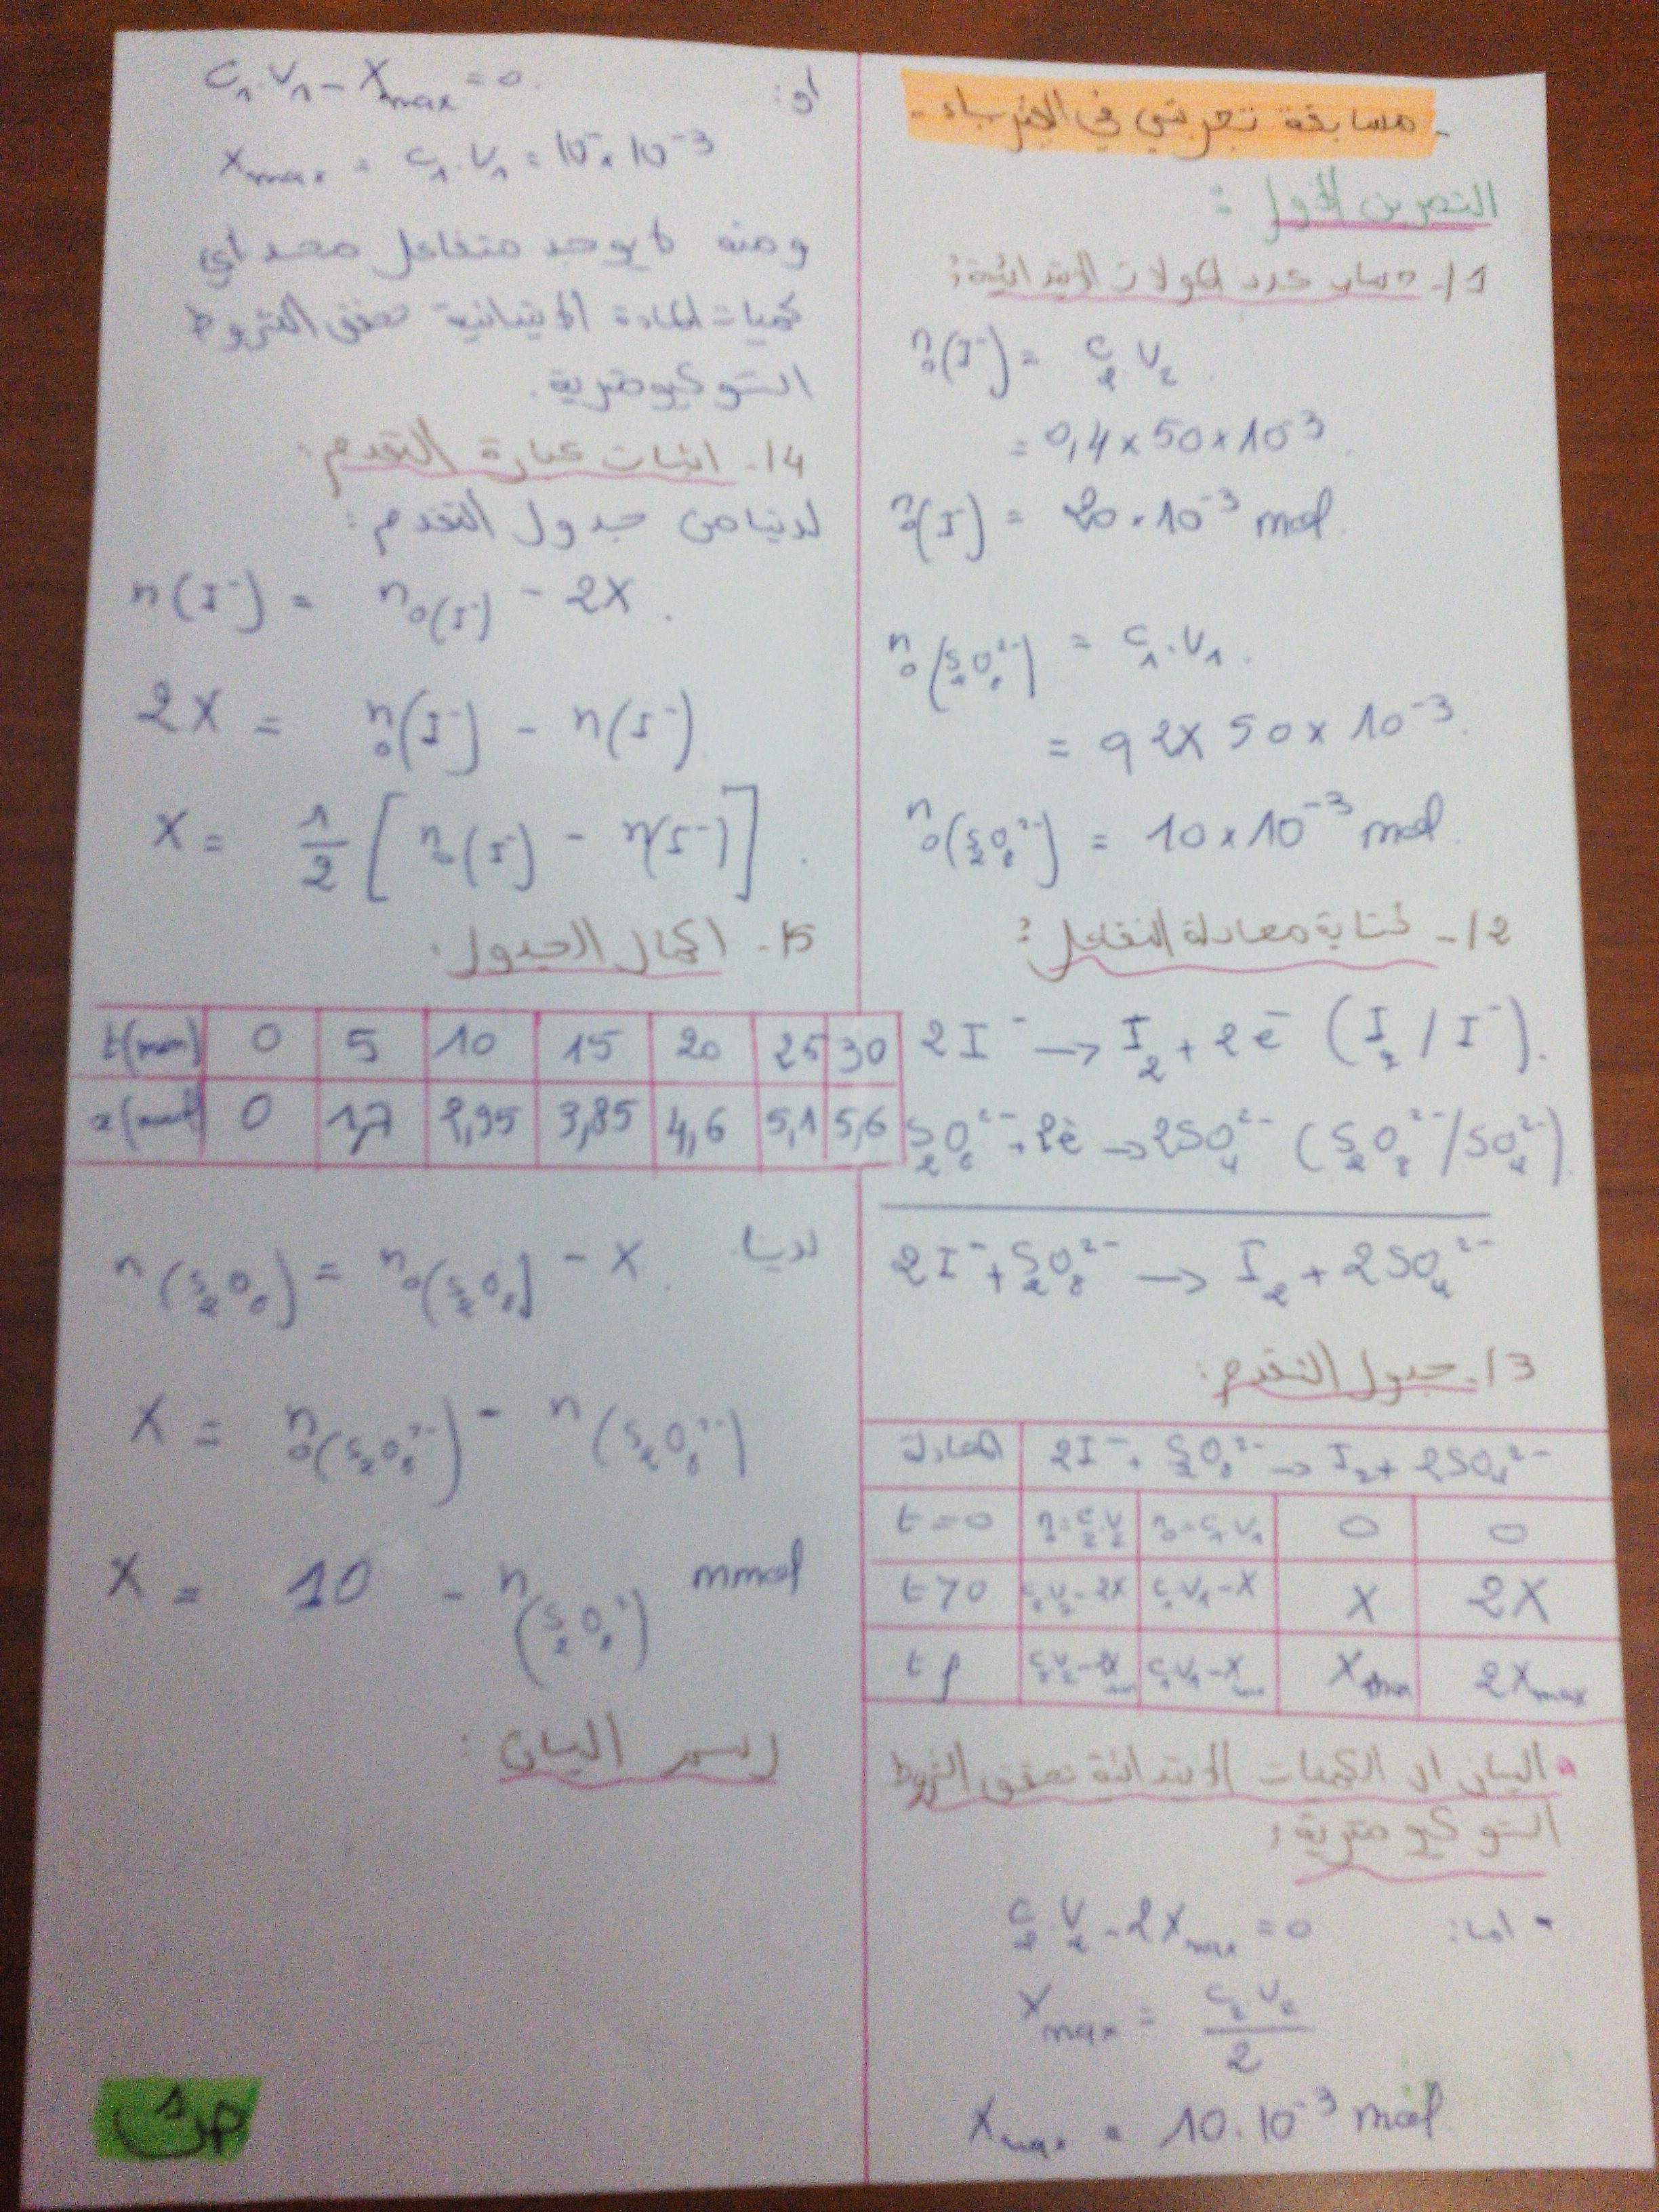 - مسابقة تجريبي في الفيزياء -
التمرين الأول :
1/- حساب عدد المولات الابتدائية :
n₀(I⁻) = C₂ V₂ .
= 0,4 × 50 × 10⁻³ .
n₀(I⁻) = 20 . 10⁻³ mol .
n₀(S₂O₈²⁻) = C₁ . V₁ .
= 0,2 × 50 × 10⁻³ .
n₀(S₂O₈²⁻) = 10 × 10⁻³ mol .
2/- كتابة معادلة التفاعل :
2I⁻ → I₂ + 2e⁻ (I₂ / I⁻) .
S₂O₈²⁻ + 2e⁻ → 2SO₄²⁻ (S₂O₈²⁻/SO₄²⁻) .
2I⁻ + S₂O₈²⁻ → I₂ + 2SO₄²⁻
3/- جدول التقدم :
المعادلة 2I⁻ + S₂O₈²⁻ → I₂ + 2SO₄²⁻
t=0 n₀=C₂.V₂ n₀=C₁.V₁ 0 0
t>0 C₂V₂-2X C₁V₁-X X 2X
tf C₂V₂-2Xmax C₁V₁-Xmax Xmax 2Xmax
• البيان ان الكميات الابتدائية تحقق الشروط
الستوكيومترية :
- اما : C₂ V₂ - 2Xmax = 0
Xmax = C₂ V₂ / 2
Xmax = 10.10⁻³ mol
أو : C₁.V₁ - Xmax = 0 .
Xmax = C₁.V₁ = 10 × 10⁻³
ومنه لا يوجد متفاعل محد اي
كميات المادة الابتدائية تحقق الشروط
الستوكيومترية .
4/- اثبات عبارة التقدم :
لدينا من جدول التقدم :
n(I⁻) = n₀(I⁻) - 2X .
2X = n₀(I⁻) - n(I⁻)
X = 1/2 [ n₀(I⁻) - n(I⁻) ] .
5/- اكمال الجدول .
t(min) 0 5 10 15 20 25 30
x(mol) 0 1,7 2,95 3,85 4,6 5,1 5,6
لدينا n(S₂O₈) = n₀(S₂O₈) - X .
X = n₀(S₂O₈²⁻) - n(S₂O₈²⁻)
X = 10 - n(S₂O₈²⁻) mmol
رسم البيان :
ص1